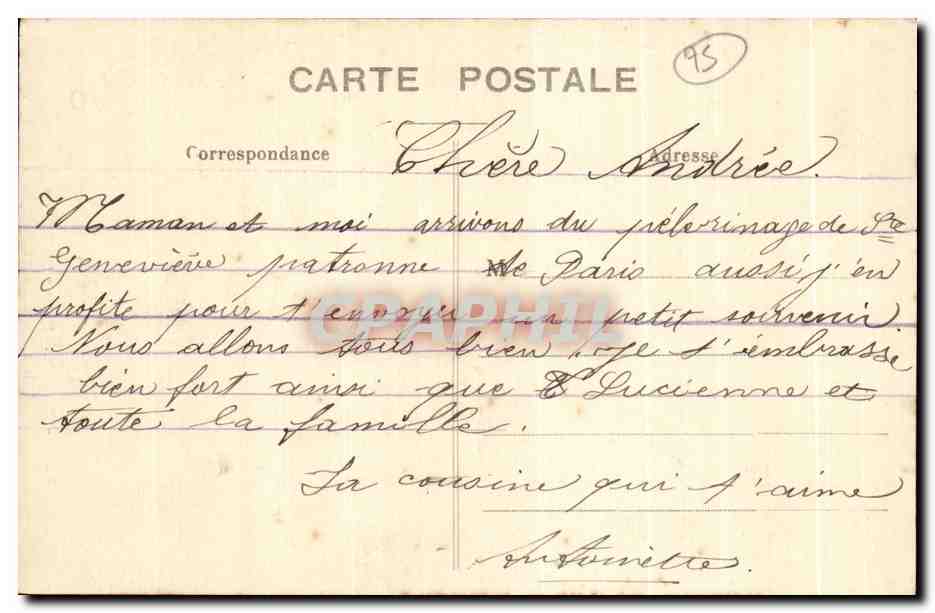 95
CARTE POSTALE
Correspondance
Adresse
Chère Andrée.
Maman et moi arrivons du pélerinage de Ste
Geneviève patronne de Paris aussi j'en
profite pour t'envoyer un petit souvenir.
Nous allons tous bien. Je t'embrasse
bien fort ainsi que Lucienne et
toute la famille.
Ta cousine qui t'aime
Antoinette.
CPAPHIL